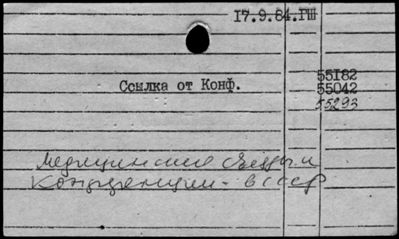 17.9.84.ГШ
Ссылка от Конф.
55182
55042
55293
Медицинские съезды и
конференции - в СССР